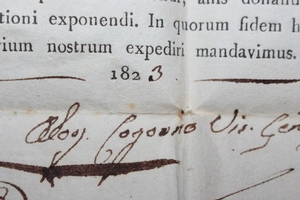 aliis donandi
tioni exponendi. In quorum fidem h
rium nostrum expediri mandavimus.
1823.
Vis. Gen